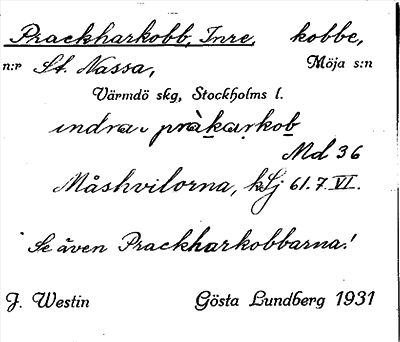 Prackharkobb, Inre, kobbe,
n:r St. Nassa, Möja s:n
Värmdö skg, Stockholms l.
indra prakarkob
Md 36
Måshvilorna, kSj 61.7.VI.
Se även Prackharkobbarna!
J. Westin Gösta Lundberg 1931